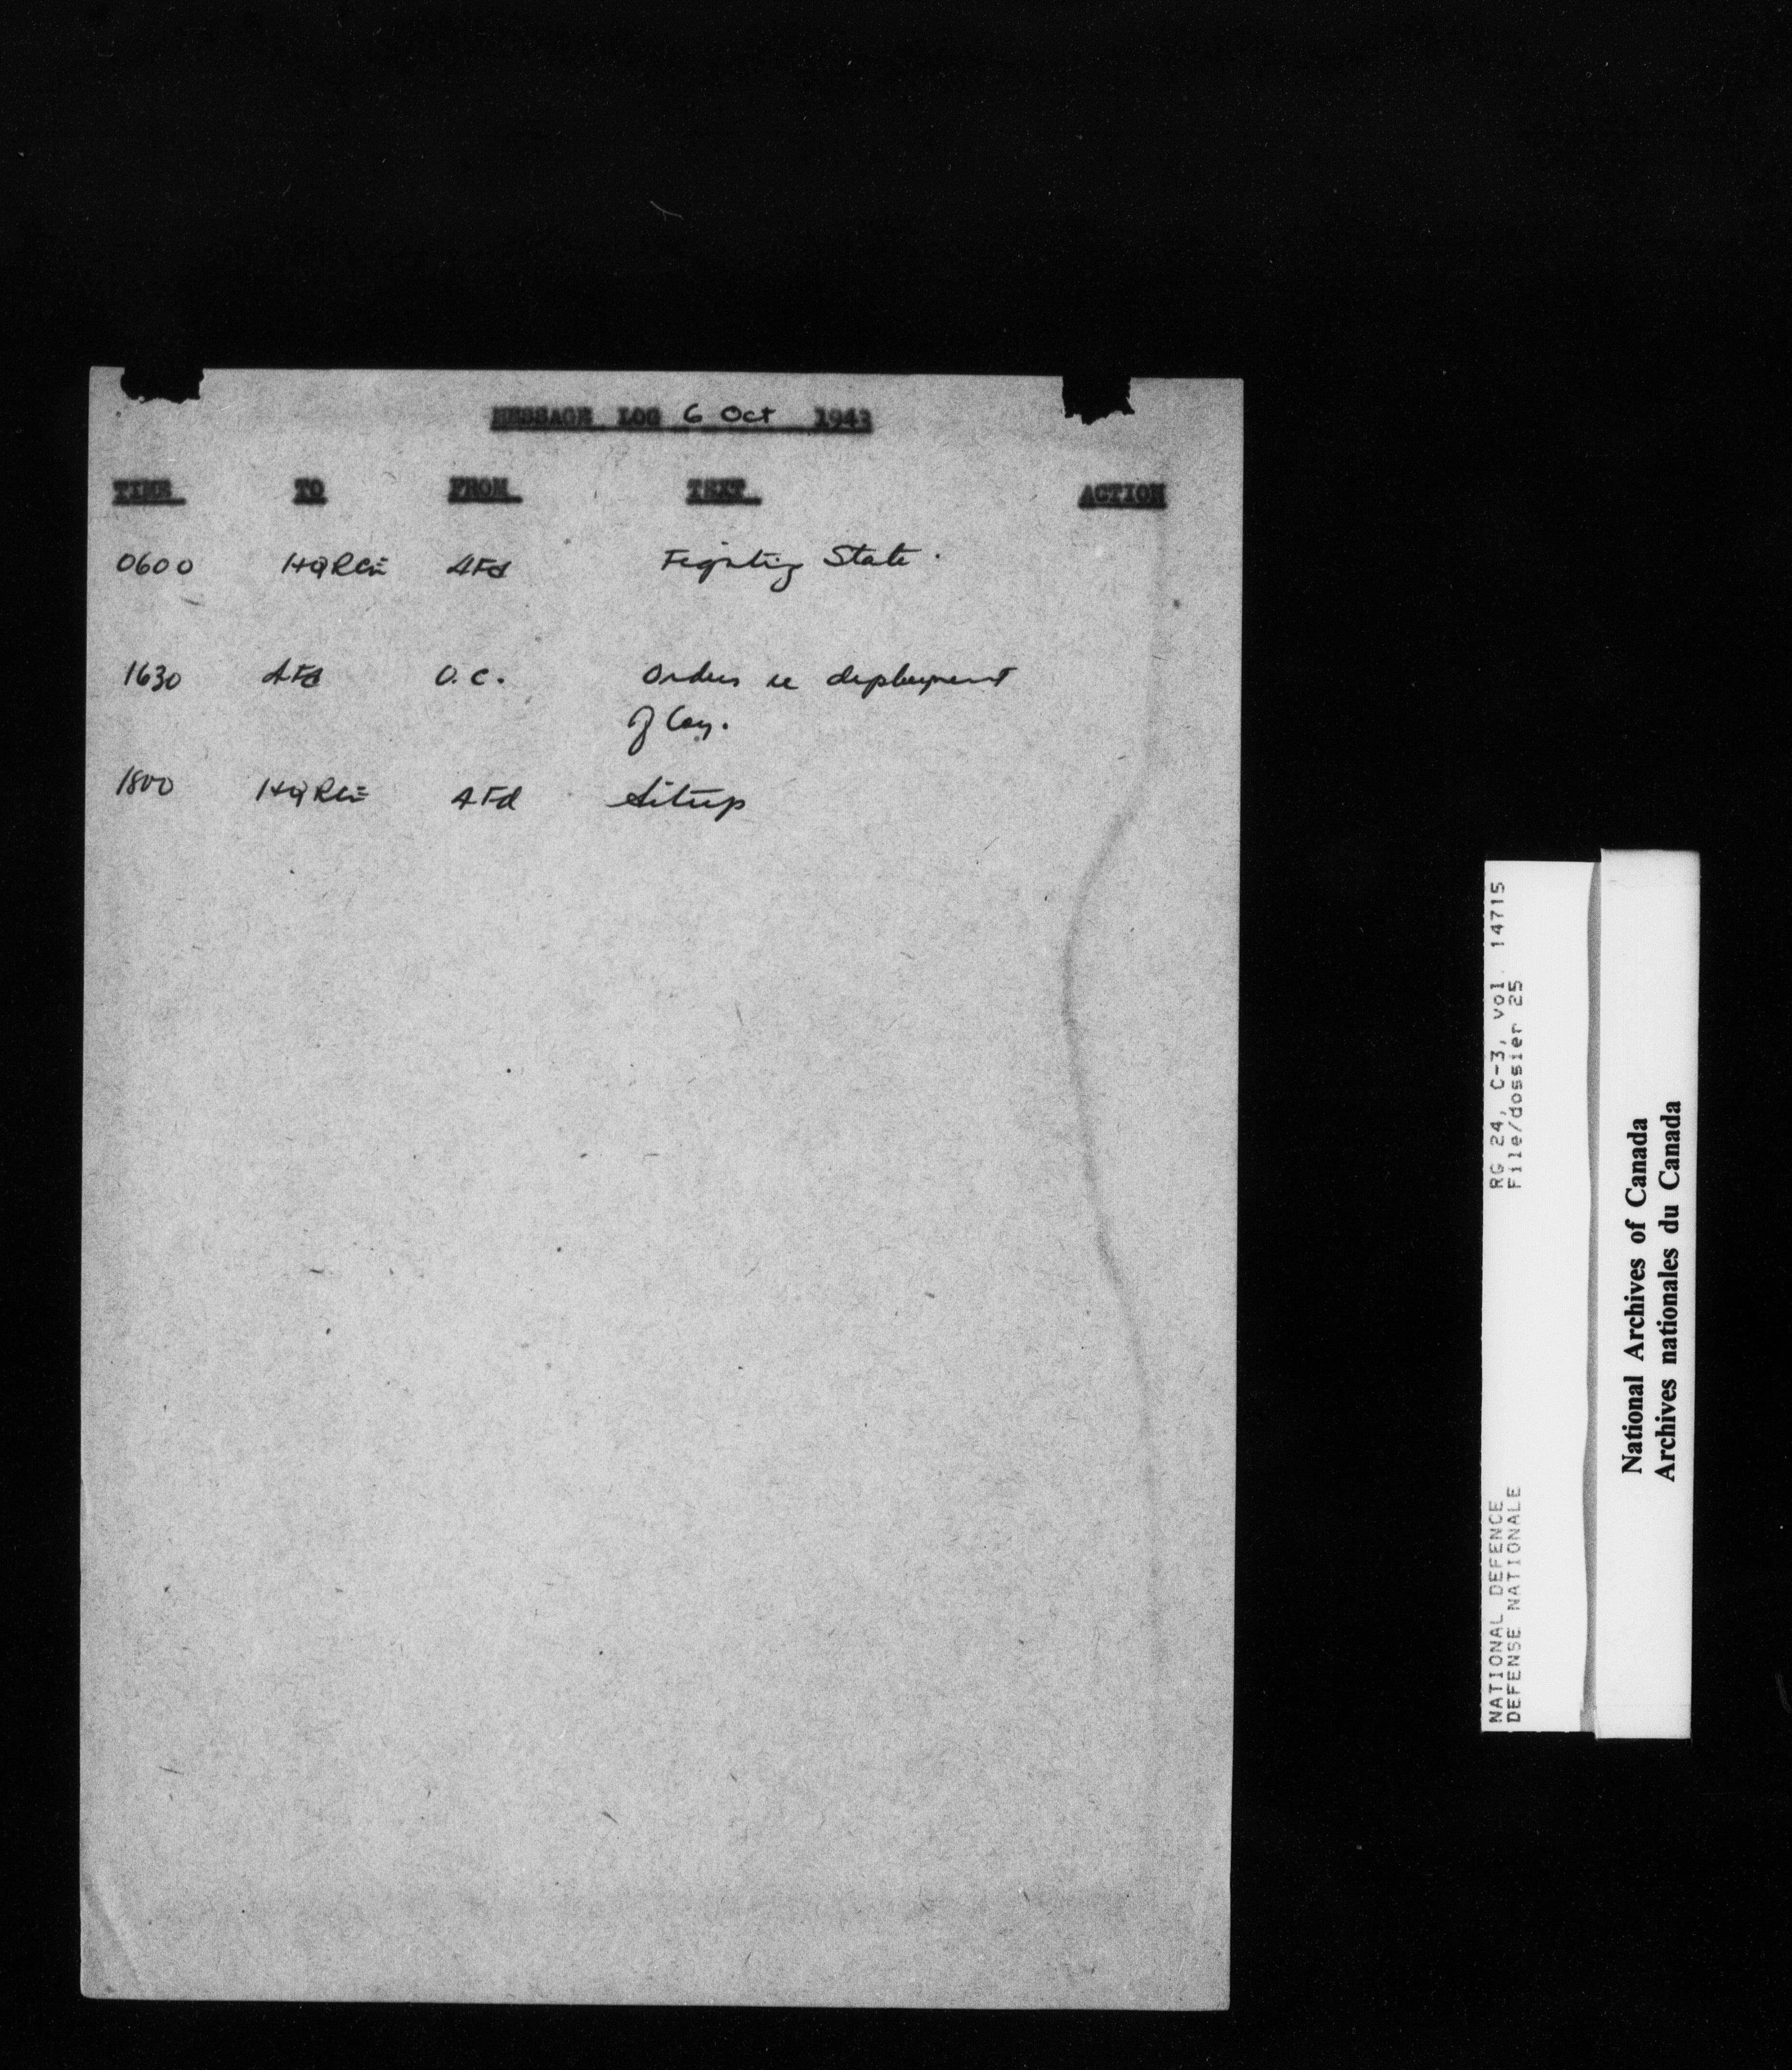 MESSAGE LOG 6 Oct 1943
TIME TO FROM TEXT ACTION
0600 HQ RCE 4 Fd Fighting State.
1630 4 Fd O.C. Orders re deployment
of Coy.
1800 HQ RCE 4 Fd Sitrep
RG 24, C-3, vol. 14715
File/dossier 25
NATIONAL DEFENCE
DEFENSE NATIONALE
National Archives of Canada
Archives nationales du Canada